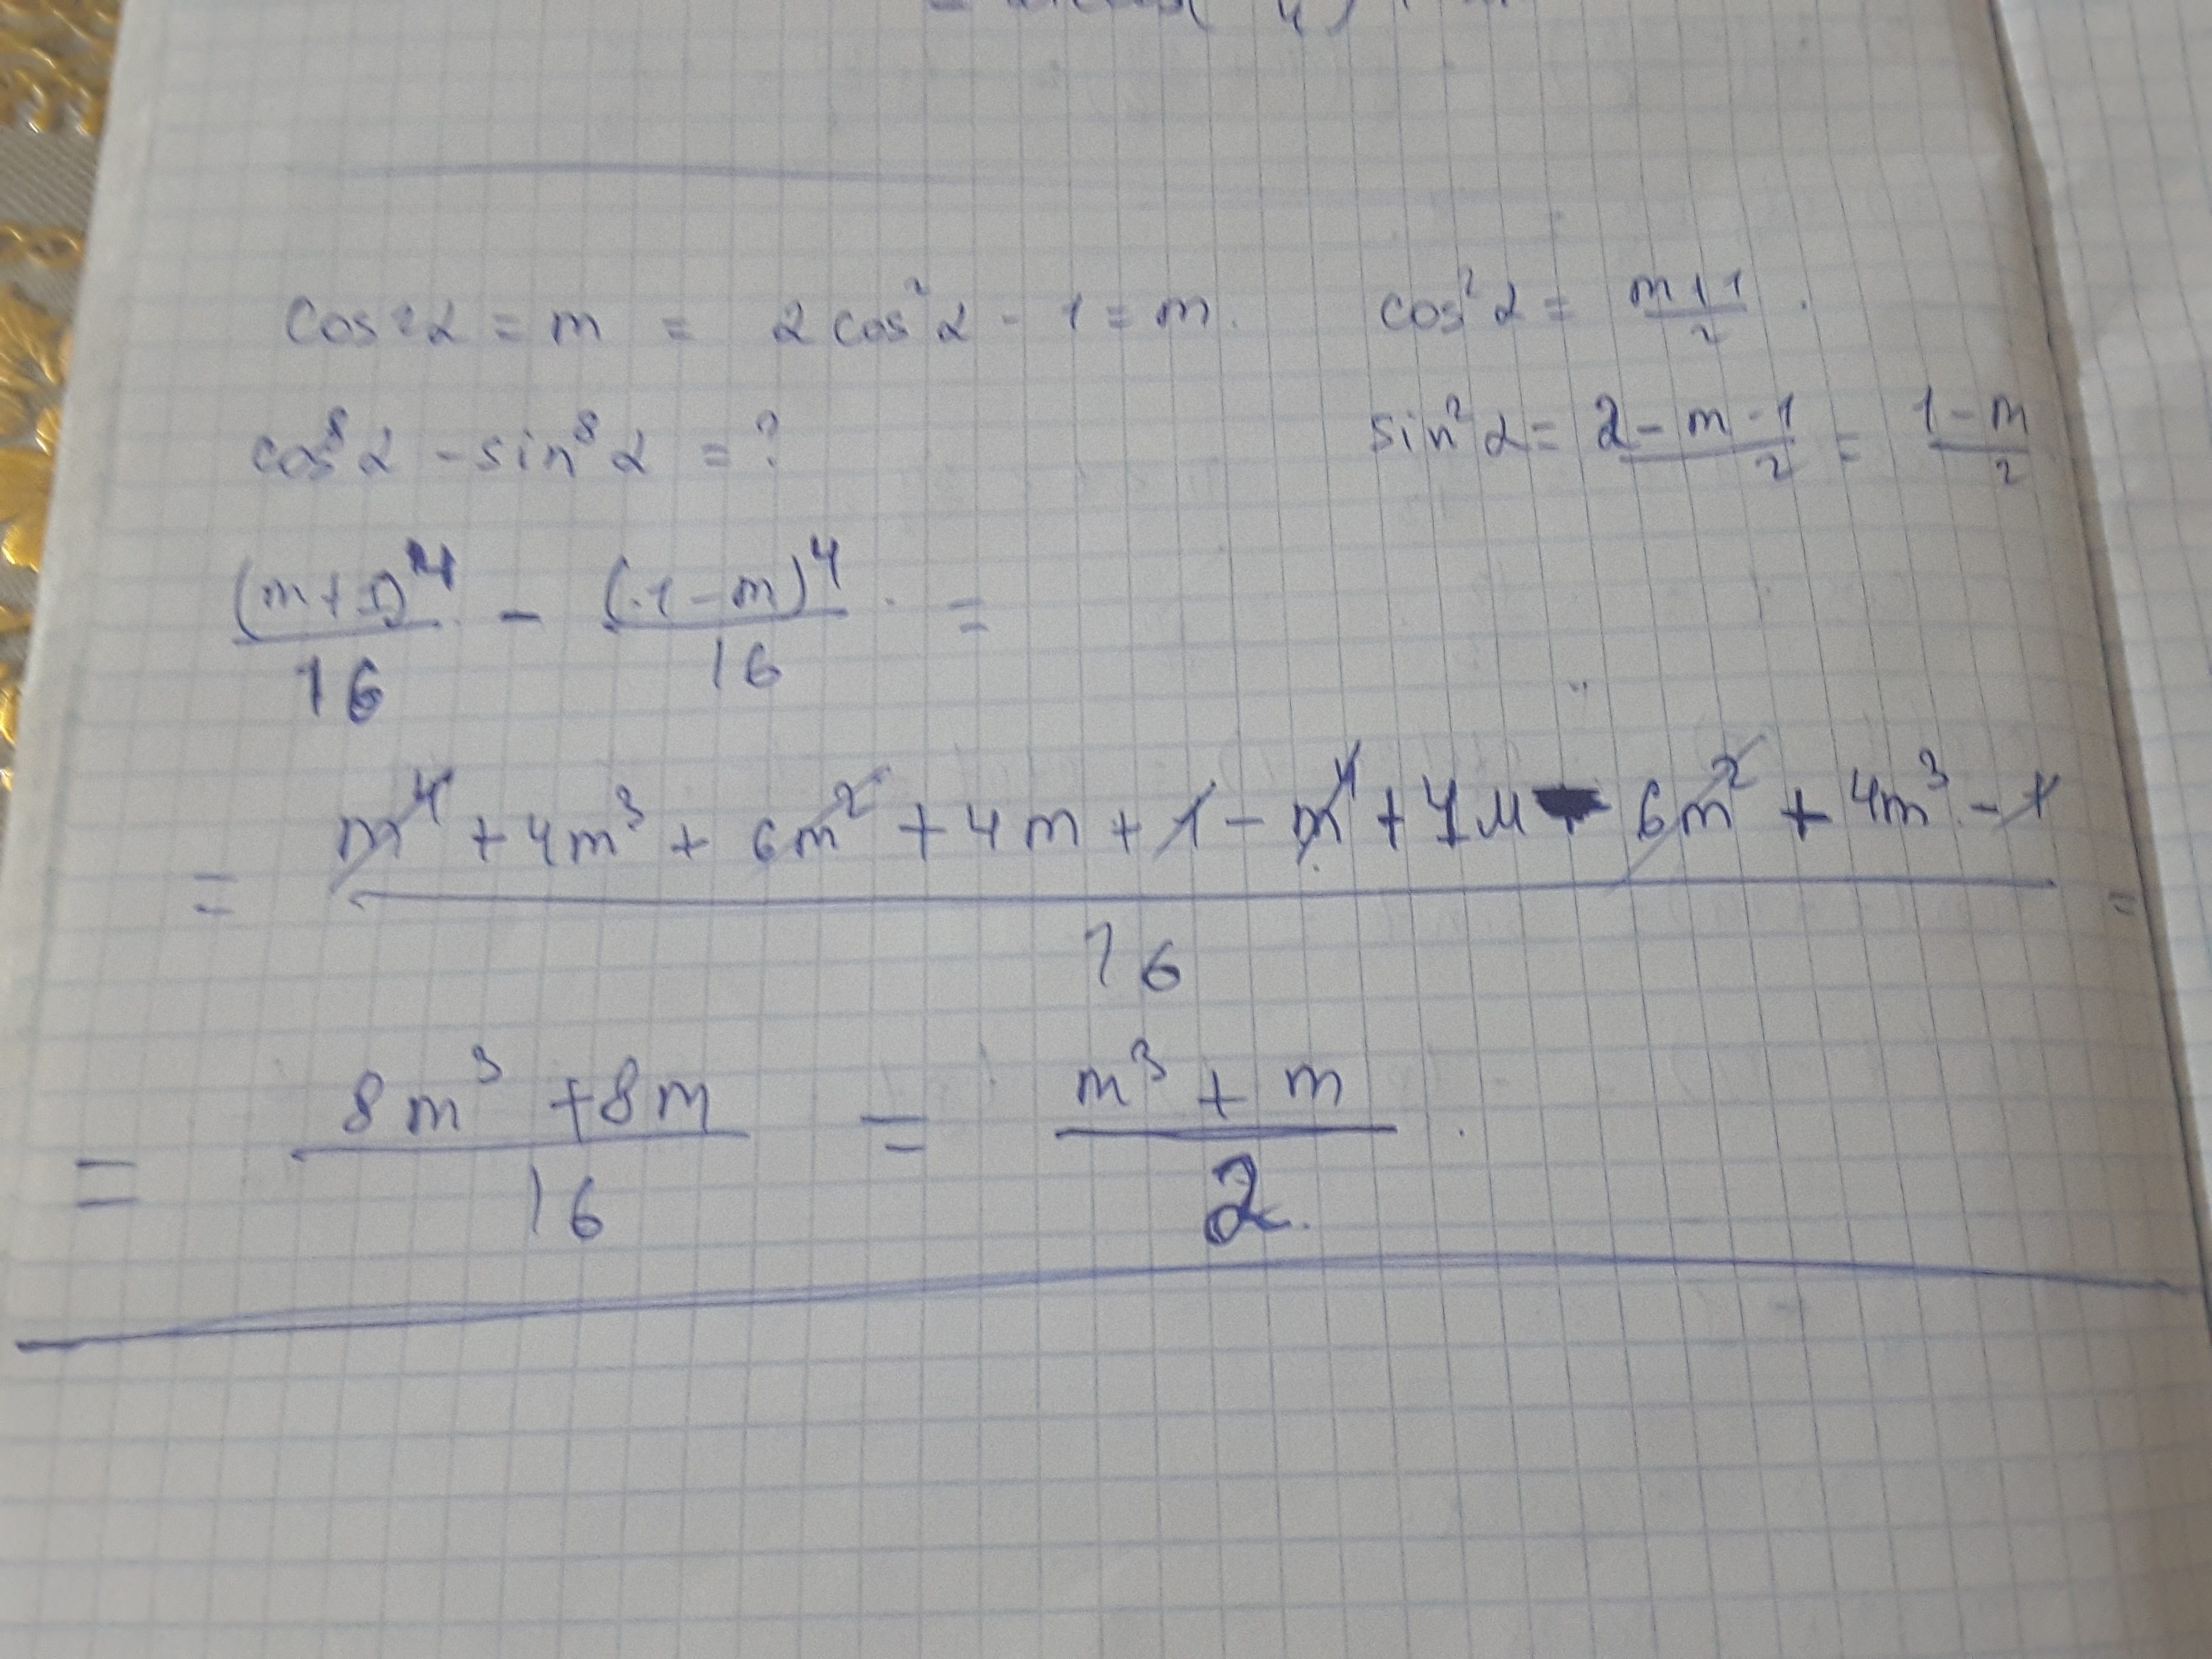 cos2α = m = 2cos²α - 1 = m. cos²α = (m+1)/2.
cos⁸α - sin⁸α = ? sin²α = (2-m-1)/2 = (1-m)/2
(m+1)⁴/16 - (1-m)⁴/16 =
= (m⁴ + 4m³ + 6m² + 4m + 1 - m⁴ + 4m - 6m² + 4m³ - 1)/16 =
= (8m³ + 8m)/16 = (m³ + m)/2.